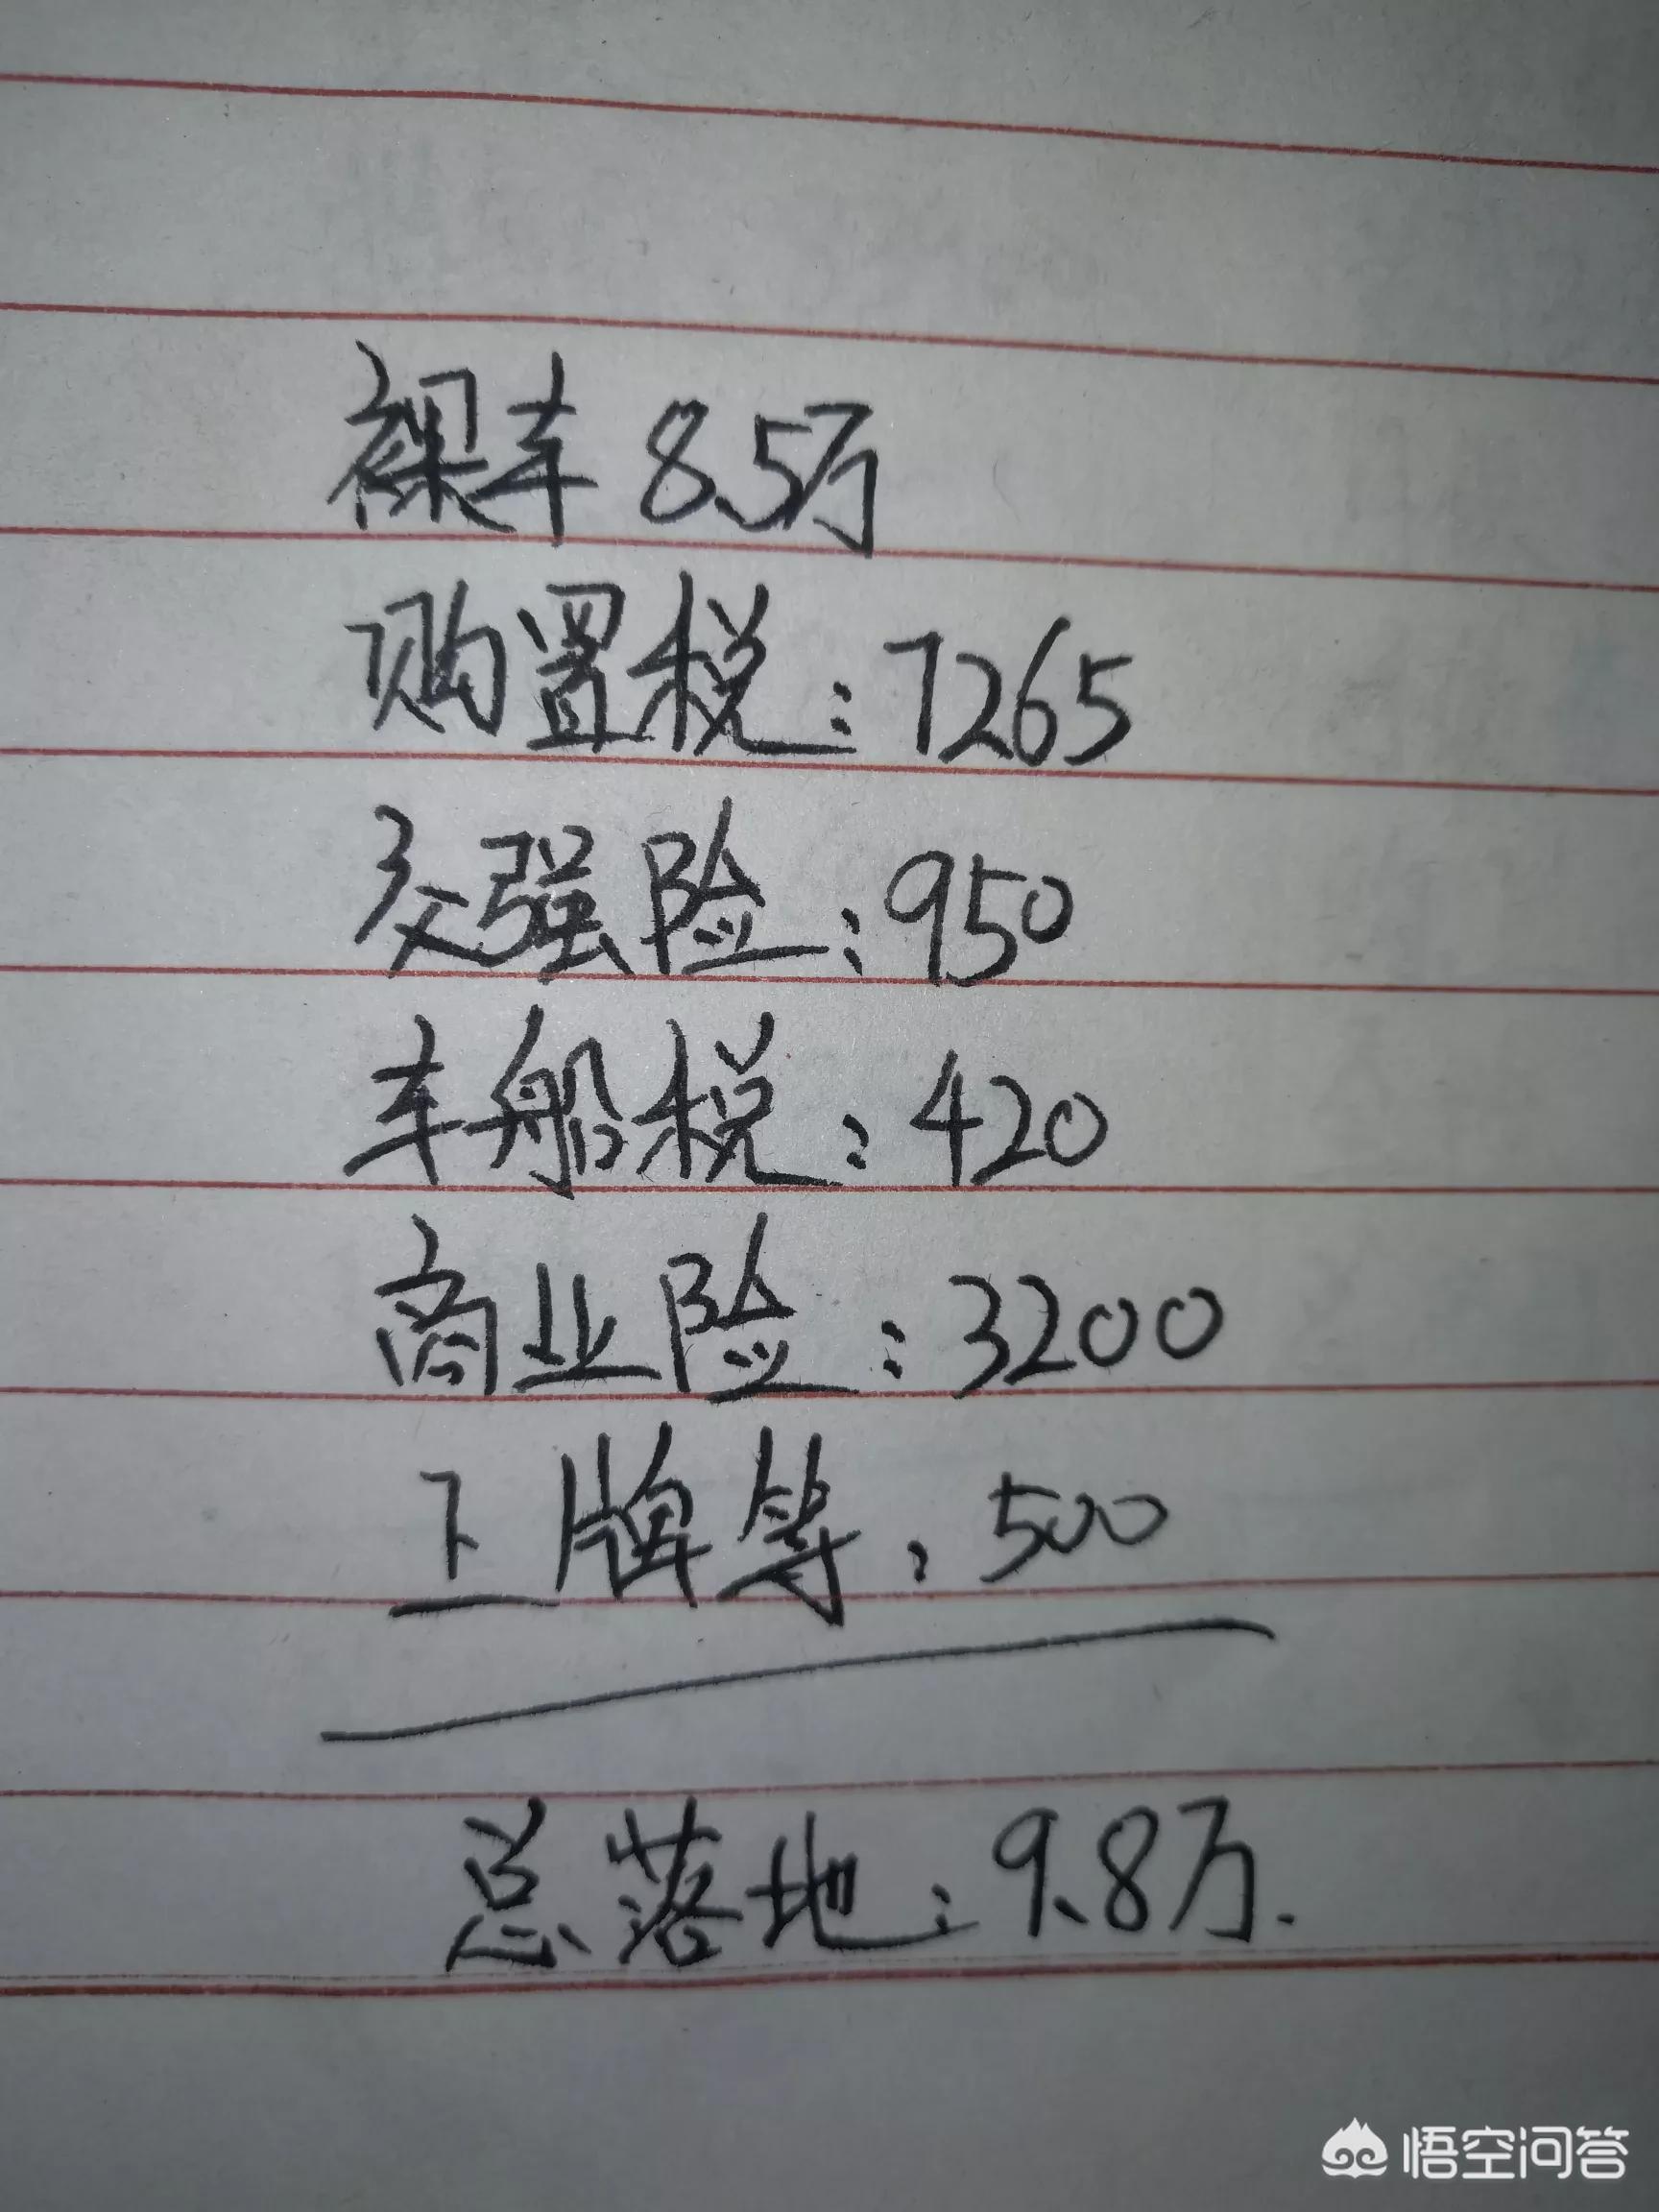 裸车 8.5万
购置税：7265
交强险：950
车船税：420
商业险：3200
上牌等，500
总落地：9.8万.
悟空问答